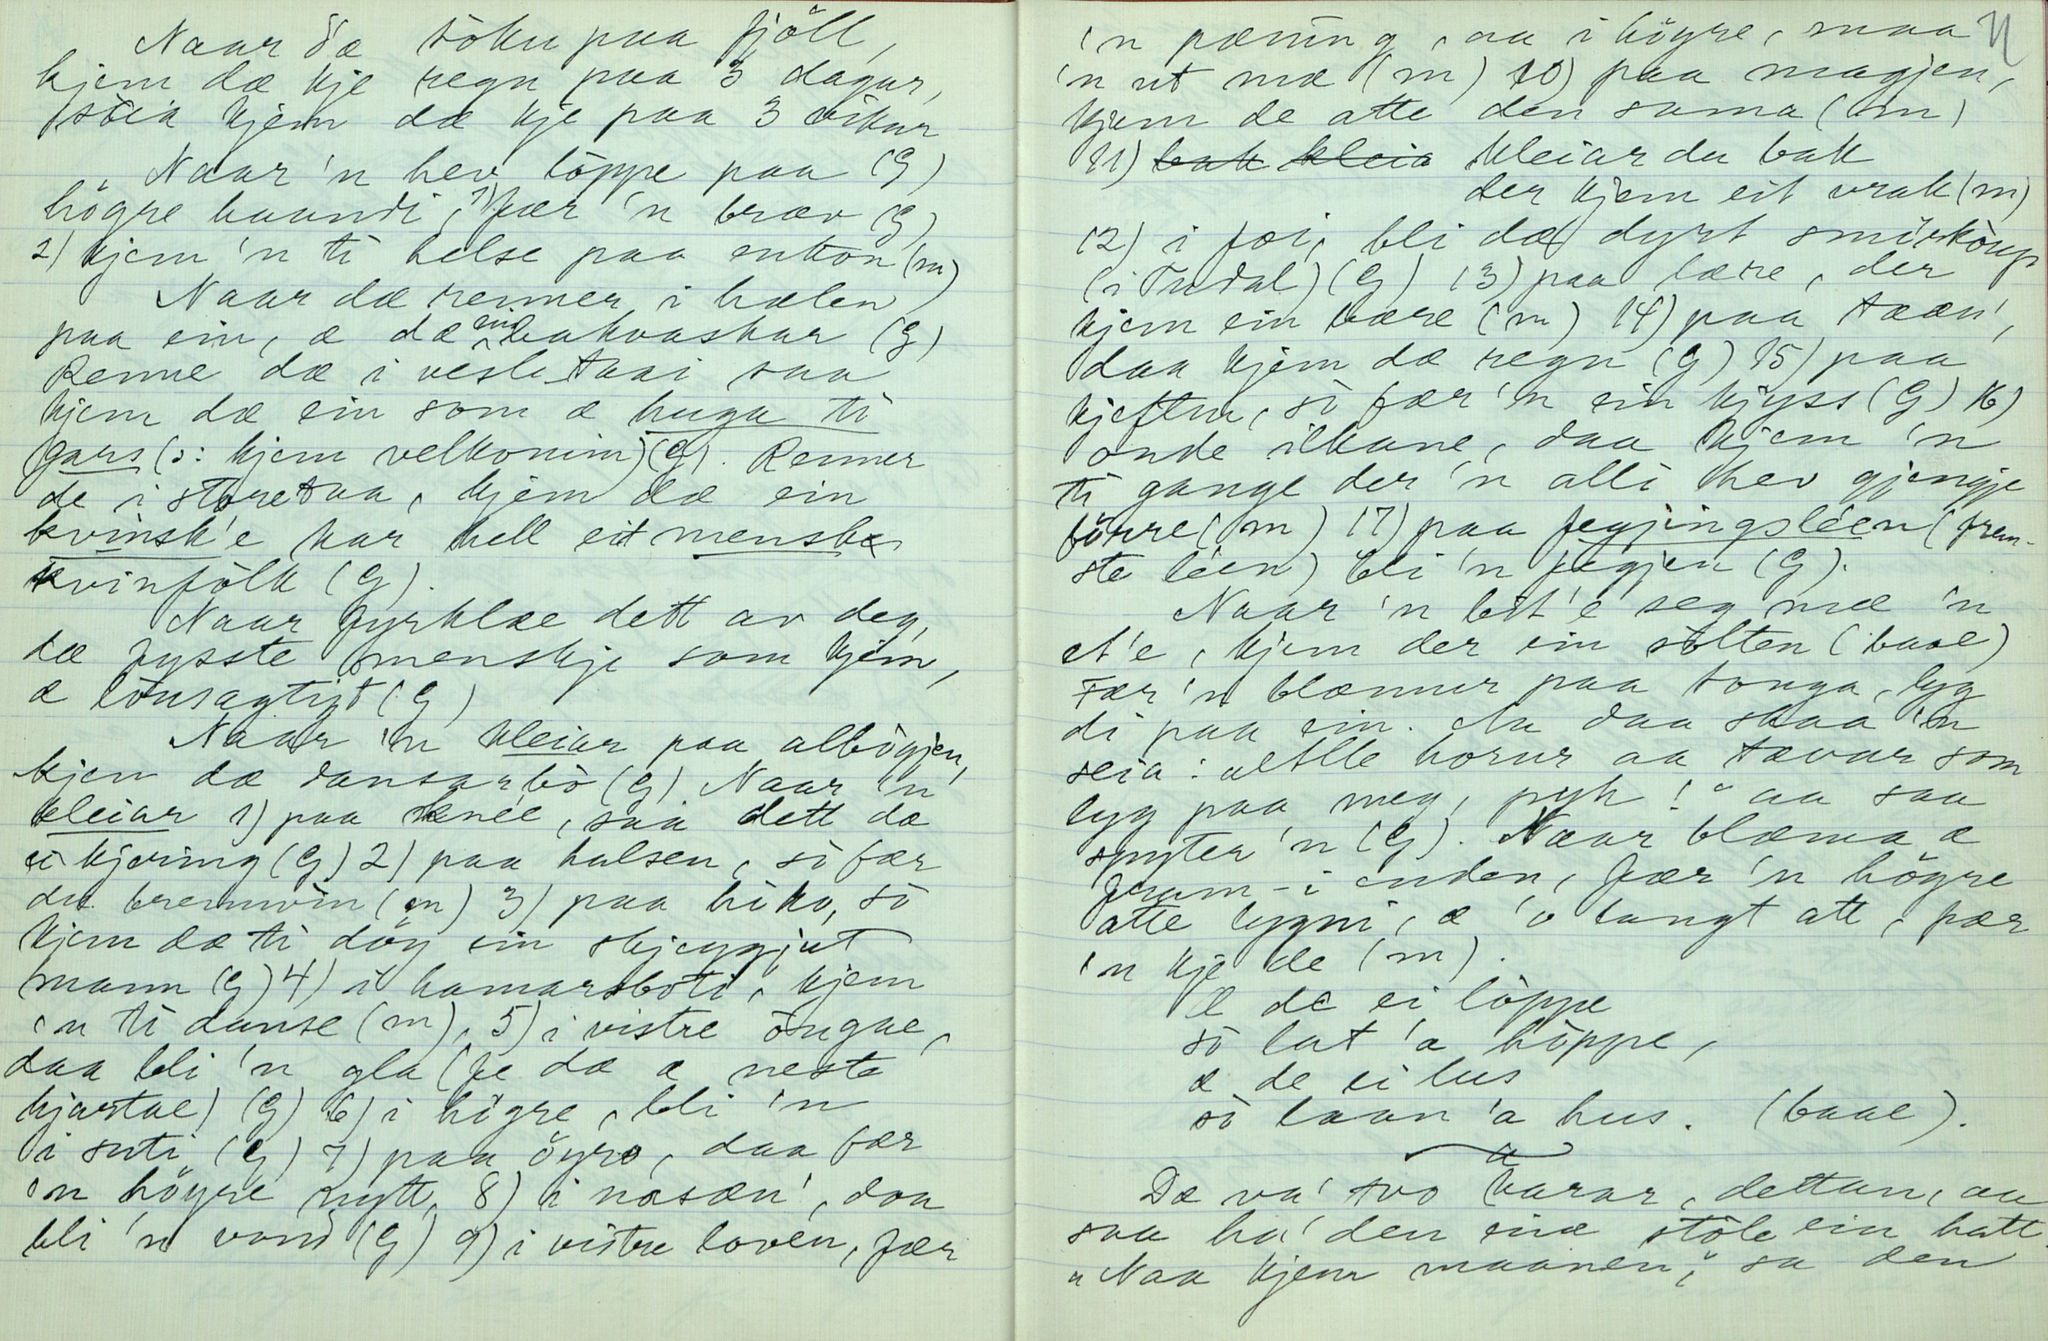 Naar dæ töku paa fjöll,
kjem dæ kje regn paa 3 dagar,
kjem dæ kje paa 3 vikur
Naar 'n hev löppe paa (G)
högre haandi, 1) fær 'n bræv (G)
2) kjem 'n ti helse paa enkon (m)
Naar dæ renner i hælen
paa ein, æ dæ ein bakvaskar (G)
Renne dæ i vesle taai saa
kjem dæ ein som æ huga ti
gars (ɔ: kjem velkomin) (G). Renner
de i storetaa, kjem dæ ein
kvinsk'e kar hell eit menske
kvinfolk (G).
Naar fyrklæ dett av deg,
dæ fysste menskje som kjem,
æ lönsagtigt (G)
Naar 'n kleiar paa albögjen,
kjem dæ dansarbò (G) Naar 'n
kleiar 1) paa knéé, saa dett dæ
ei kjering (G) 2) paa halsen, sò fær
du brennvin (m) 3) paa hòko, sò
kjem dæ ti dög ein skjeggjut
mann (G) 4) i hamarsboti, kjem
'n ti danse (m), 5) i vistre öugae,
daa bli 'n gla (fe dæ æ neste
hjartae) (G) 6) i högre, bli 'n
i suti (G) 7) paa öyro, daa fær
'n högre nytt, 8) i nasæn', daa
bli 'n vond (G) 9) i vistre loven, fær
11
'n pæning, aa i högre, maa
'n ut mæ (m) 10) paa magjen,
kjem de atte den sama (m)
11) bak kleia kleiar du bak
der kjem eit vrak (m)
12) i fæi, bli dæ dyrt smörköup
(i Tudal) (G) 13) paa lære, der
kjem ein bære (m) 14) paa tææn',
daa kjem dæ regn (G) 15) paa
kjeften, sò fær 'n ein kjyss (G) 16)
onde ilkane, daa kjem 'n
ti gange der 'n alli hev gjengje
förre (m) 17) paa fegjingsléen (frem-
ste léen) bli 'n fegjen (G).
Naar 'n bit'e seg mæ 'n
et'e, kjem der ein sölten (baae)
Fær 'n blæmur paa tonga, lyg
di paa ein. Aa daa skaa 'n
seia: "Alle horur aa tævur som
lyg paa meg, pyh!" aa saa
spyter 'n (G). Naar blæma æ
fram-i enden, fær 'n högre
atte lygni, æ 'o langt att, fær
'n kje de (m).
Æ de ei löppe
sò lat 'a höppe,
æ de ei lus
sò laan 'a hus. (baae).
Dæ va' tvo karar, dettan, aa
saa ha' den eine stöle ein hatt.
"Naa kjem maanen," sa den